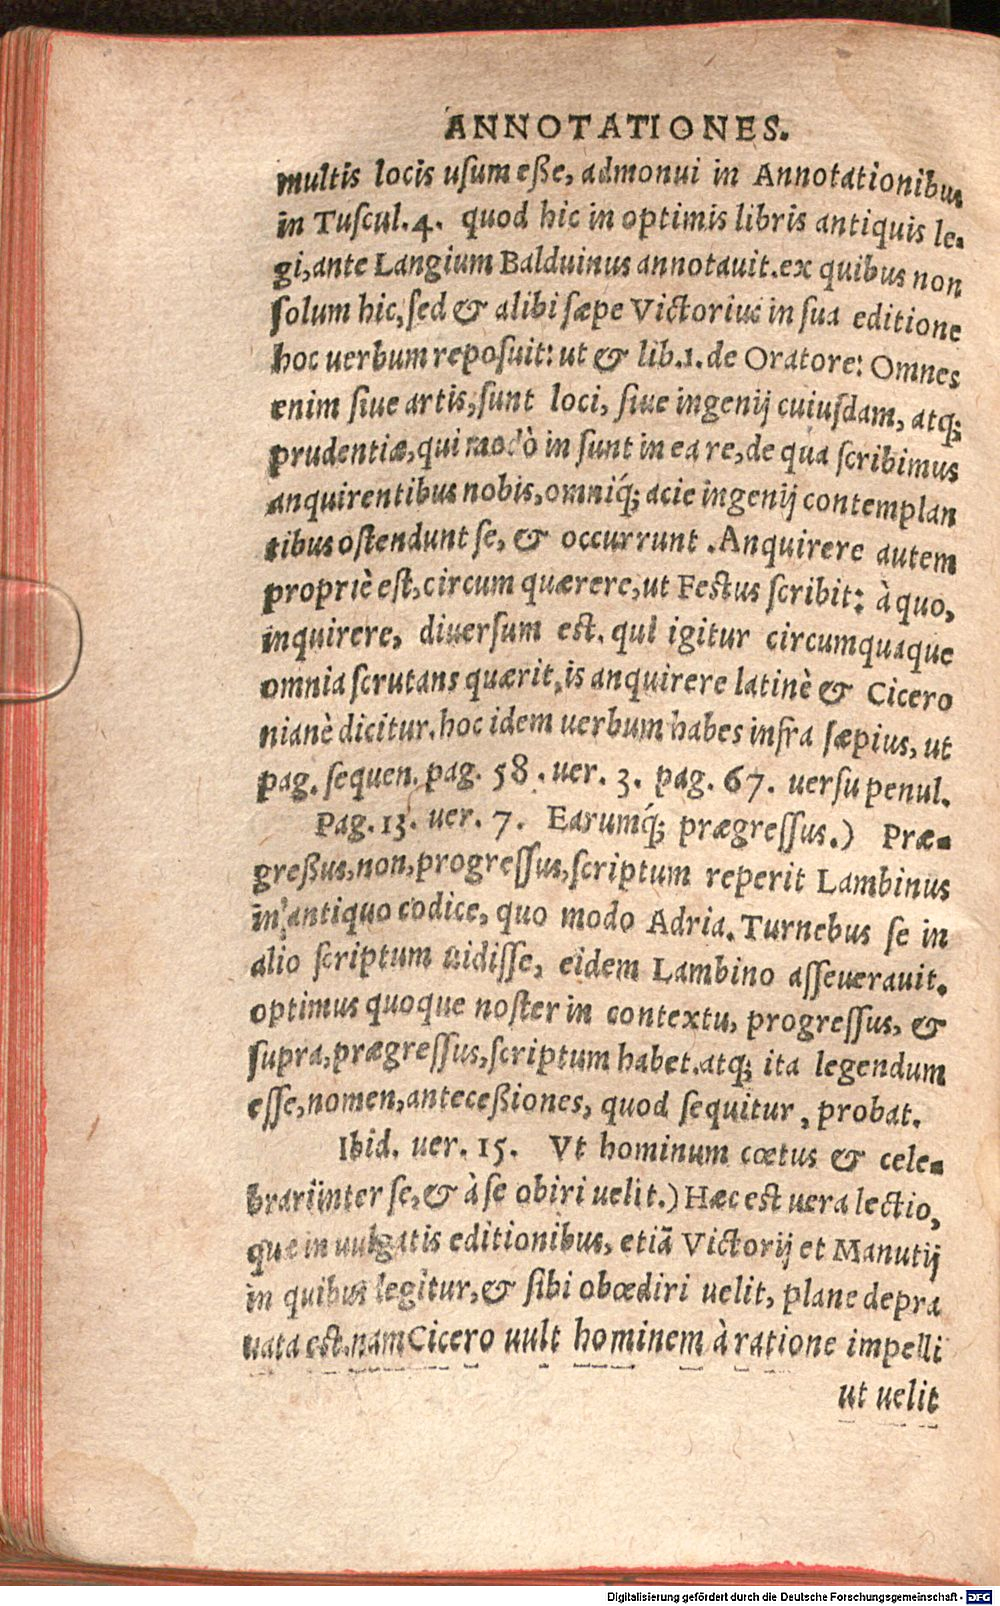 ANNOTATIONES.
multis locis uſum eße, admonui in Annotationibus
in Tuſcul.4. quod hic in optimis libris antiquis le-
gi, ante Langium Balduinus annotauit. ex quibus non
ſolum hic, ſed & alibi ſæpe Victorius in ſua editione
hoc uerbum repoſuit: ut & lib.1. de Oratore: Omnes
enim ſiue artis, ſunt loci, ſiue ingenij cuiuſdam, atq;
prudentiæ, qui modò in ſunt in ea re, de qua ſcribimus
anquirentibus nobis, omniq́; acie ingenij contemplan
tibus oſtendunt ſe, & occurrunt. Anquirere autem
propriè eſt, circum quærere, ut Feſtus ſcribit: à quo,
inquirere, diuerſum eſt. qui igitur circumquaque
omnia ſcrutans quærit, is anquirere latinè & Cicero
nianè dicitur. hoc idem uerbum habes infra ſæpius, ut
pag. ſequen. pag. 58. uer. 3. pag. 67. uerſu penul.
Pag. 13. uer. 7. Earumq́; prægreſſus.) Præ-
greßus, non, progreſſus, ſcriptum reperit Lambinus
in antiquo codice, quo modo Adria. Turnebus ſe in
alio ſcriptum uidiſſe, eidem Lambino aſſeuerauit.
optimus quoque noſter in contextu, progreſſus, &
ſupra, prægreſſus, ſcriptum habet. atq; ita legendum
eſſe, nomen, anteceßiones, quod ſequitur, probat.
Ibid. uer. 15. Vt hominum cœtus & cele-
brari inter ſe, & à ſe obiri uelit.) Hæc eſt uera lectio,
quæ in uulgatis editionibus, etiã Victorij et Manutij
in quibus legitur, & ſibi obœdiri uelit, plane depra
uata eſt. nam Cicero uult hominem à ratione impelli
ut uelit
Digitalisierung gefördert durch die Deutsche Forschungsgemeinschaft - DFG